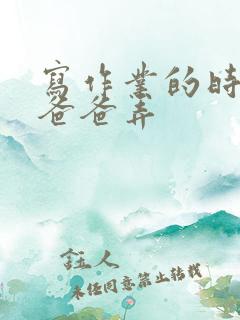 寫作業的時
爸爸弄
鈺人
未經同意禁止轉載